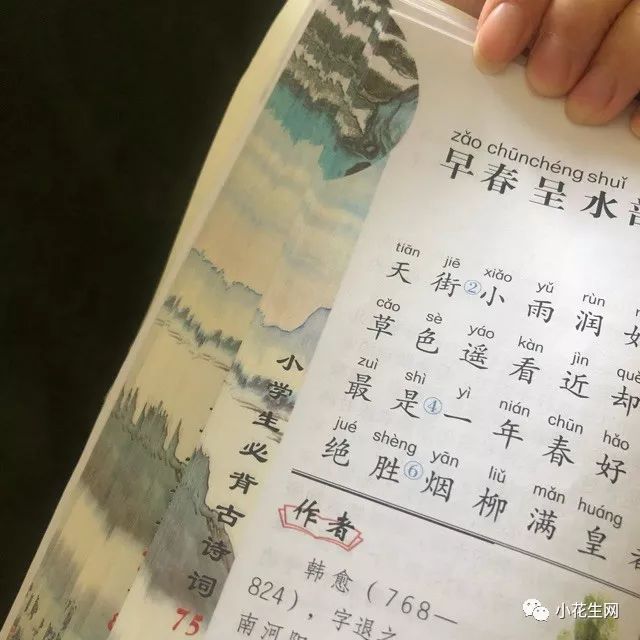 zǎo chūnchéng shuǐ
早春呈水
tiān jiē xiǎo yǔ rùn
天街②小雨润
cǎo sè yáo kàn jìn què
草色遥看近却
zuì shì yì nián chūn hǎo
最是④一年春好
jué shèng yān liǔ mǎn huáng
绝胜⑥烟柳满皇
作者
韩愈(768—
824),字退之
小学生必背古诗词
75
小花生网